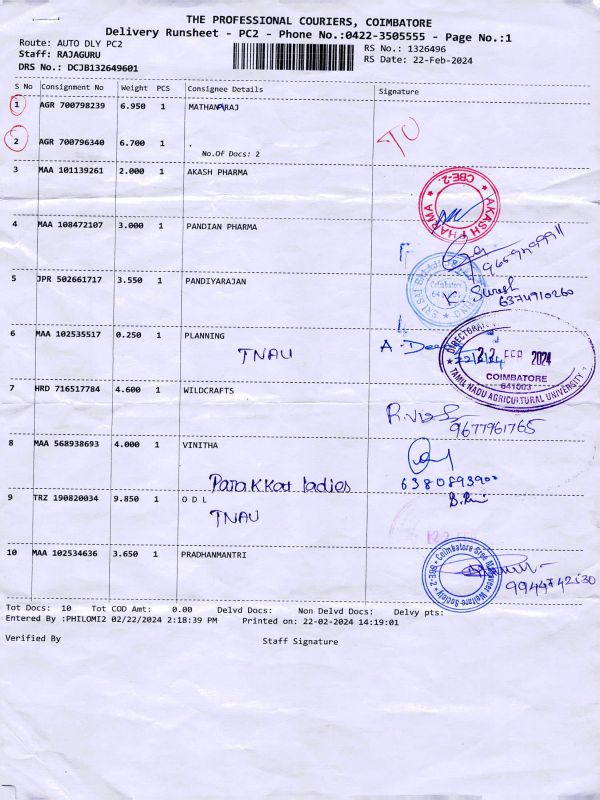 THE PROFESSIONAL COURIERS, COIMBATORE
Delivery Runsheet - PC2 - Phone No.:0422-3505555 - Page No.:1
Route: AUTO DLY PC2 RS No.: 1326496
Staff: RAJAGURU RS Date: 22-Feb-2024
DRS No.: DCJB132649601
S No Consignment No Weight PCS Consignee Details Signature
1 AGR 700798239 6.950 1
2 AGR 700796340 6.700 1 .
No.Of Docs: 2
3 MAA 101139261 2.000 1 AKASH PHARMA
AKASH PHARMA CBE-2.
4 MAA 108472107 3.000 1 PANDIAN PHARMA
5 JPR 502661717 3.550 1 PANDIYARAJAN
Coimbatore
K. Suresh
6374910260
6 MAA 102535517 0.250 1 PLANNING
TNAU
22 FEB 2024
COIMBATORE
641003
TAMIL NADU AGRICULTURAL UNIVERSITY
7 HRD 716517784 4.600 1 WILDCRAFTS
9677961765
8 MAA 568938693 4.000 1 VINITHA
Parakkat ladies
6380893900
9 TRZ 190820034 9.850 1 O D L
TNAU
10 MAA 102534636 3.650 1 PRADHANMANTRI
Welfare Society CBE-2
Tot Docs: 10 Tot COD Amt: 0.00 Delvd Docs: Non Delvd Docs: Delvy pts:
Entered By :PHILOMI2 02/22/2024 2:18:39 PM Printed on: 22-02-2024 14:19:01
Verified By Staff Signature